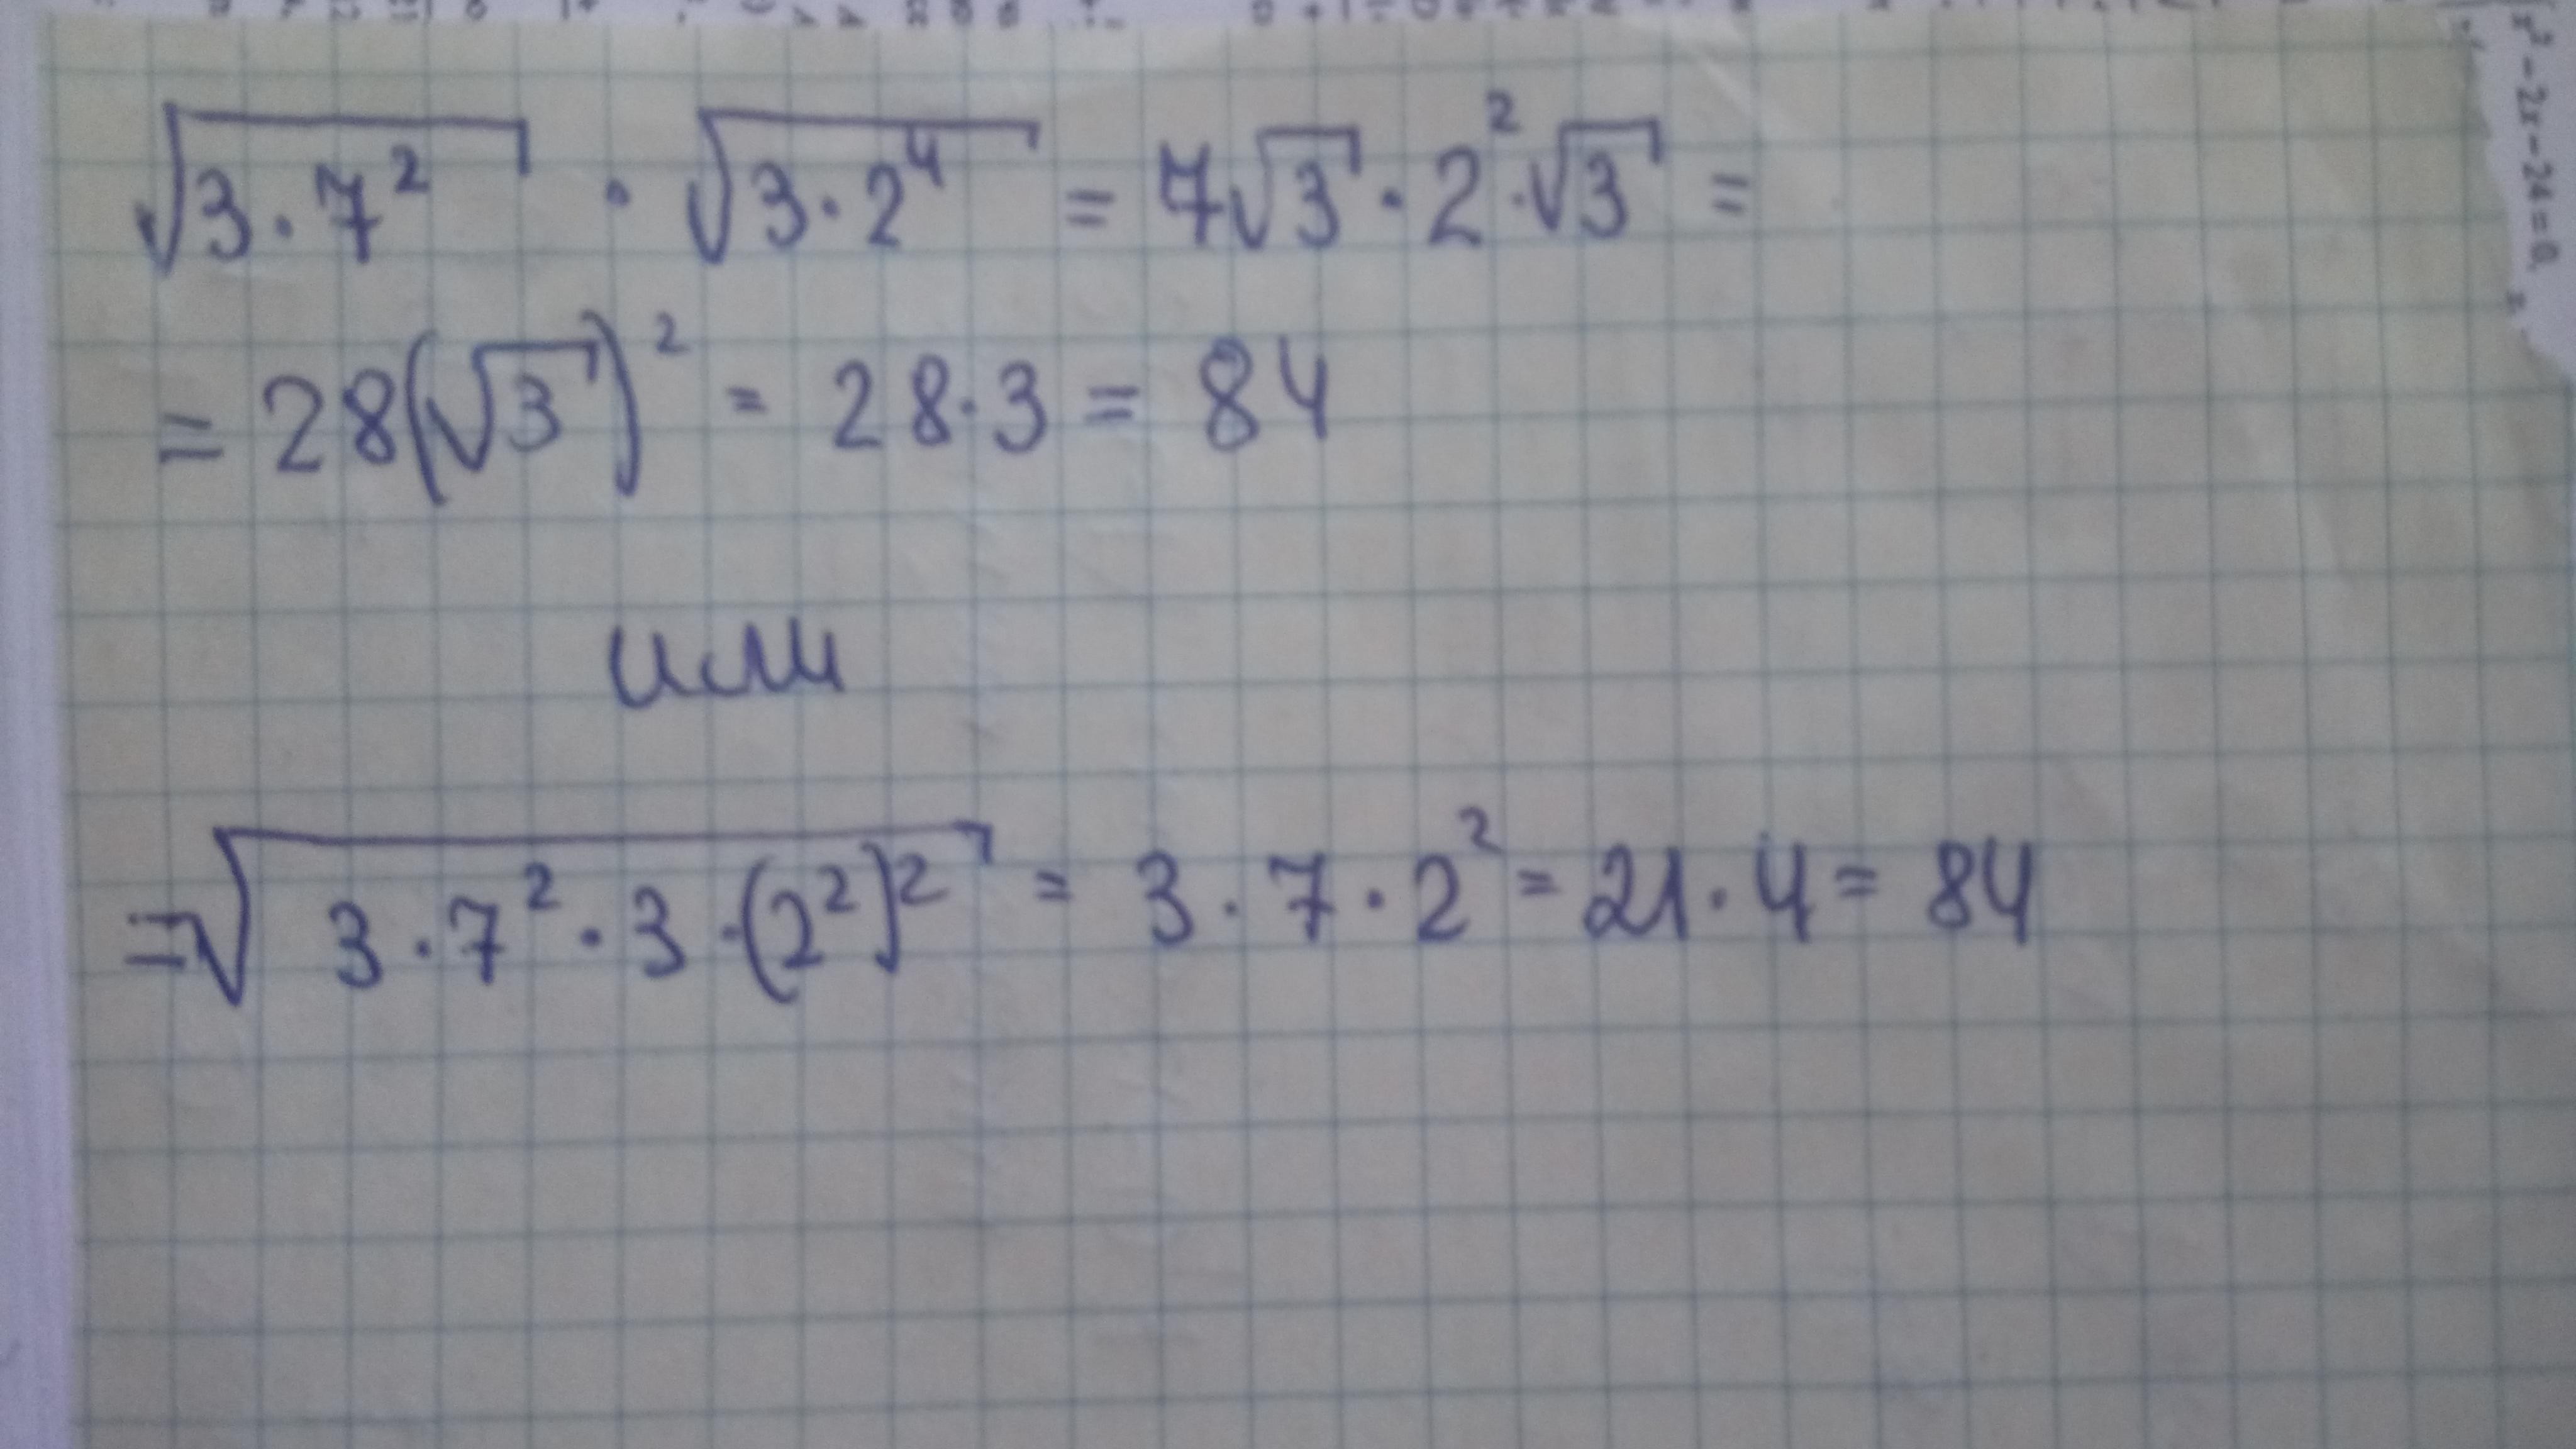 √(3·7²) · √(3·2⁴) = 7√3 · 2²·√3 =
= 28(√3)² = 28·3 = 84
или
=√(3·7²·3·(2²)²) = 3·7·2² = 21·4 = 84
x² – 2x – 24 = 0,